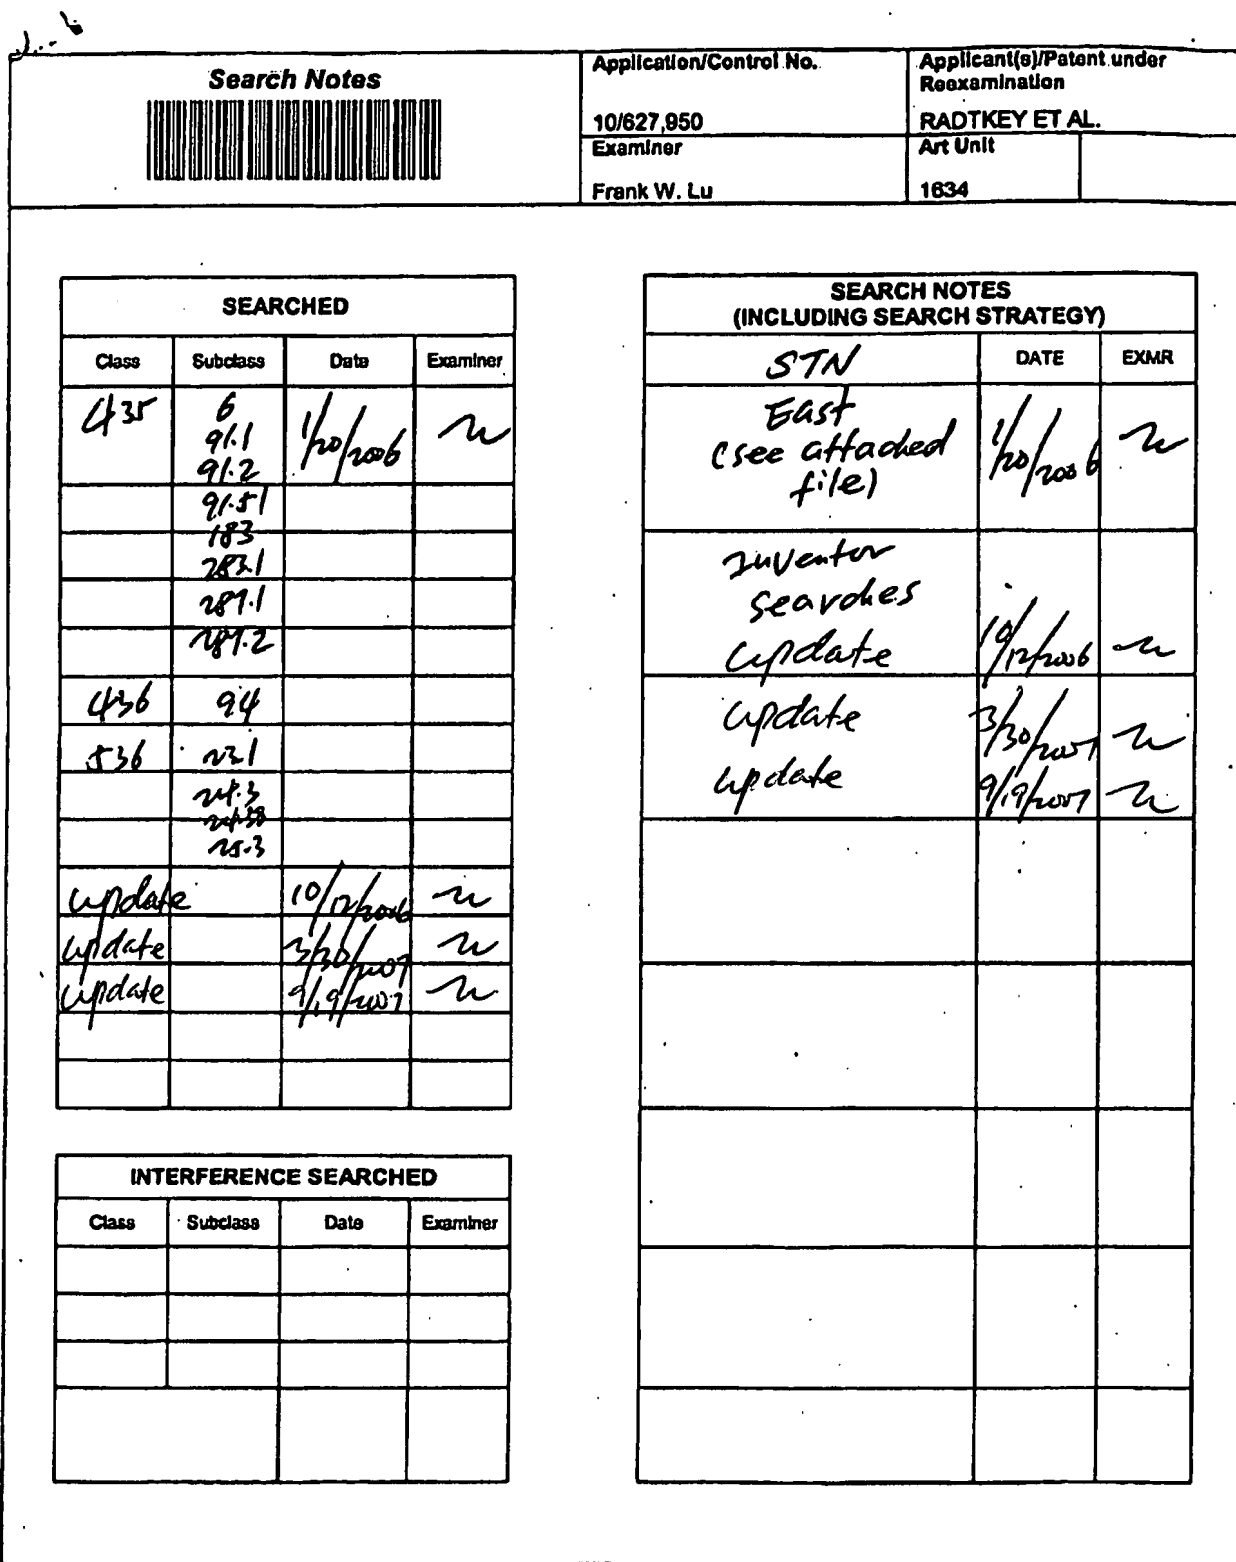 Search Notes
Application/Control No.
10/627,950
Applicant(s)/Patent under
Reexamination
RADTKEY ET AL.
Examiner
Frank W. Lu
Art Unit
1634
SEARCHED
Class Subclass Date Examiner
435 6 1/20/2006
91.1
91.2
91.51
183
283.1
287.1
287.2
436 94
536 23.1
24.3
24.33
25.3
update 10/12/2006
update 3/30/2007
update 9/19/2007
INTERFERENCE SEARCHED
Class Subclass Date Examiner
SEARCH NOTES
(INCLUDING SEARCH STRATEGY)
STN DATE EXMR
East 1/20/2006
(see attached
file)
Inventor
searches
update 10/12/2006
update 3/30/2007
update 9/19/2007